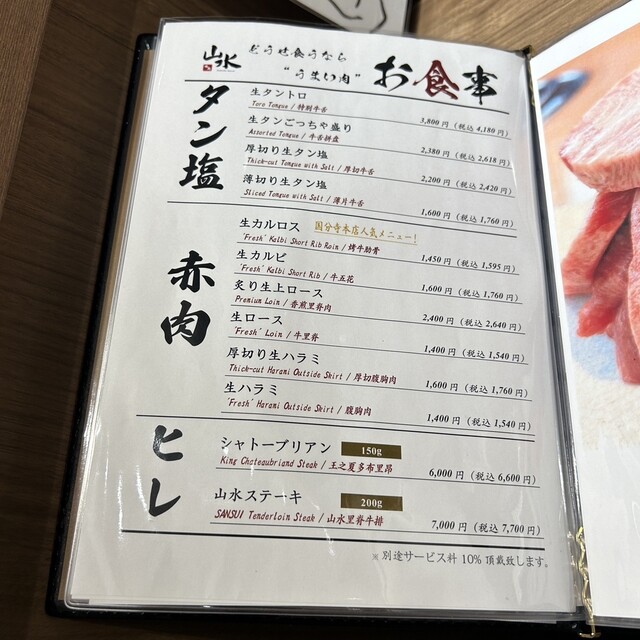 山水
どうせ食うなら
"うまい肉"
お食事
タン塩
生タントロ
Toro Tongue / 特別牛舌
3,800円 (税込 4,180円)
生タンごっちゃ盛り
Assorted Tongue / 牛舌拼盘
2,380円 (税込 2,618円)
厚切り生タン塩
Thick-cut Tongue with Salt / 厚切牛舌
2,200円 (税込 2,420円)
薄切り生タン塩
Sliced Tongue with Salt / 薄片牛舌
1,600円 (税込 1,760円)
赤肉
生カルロス 国分寺本店人気メニュー!
'Fresh' Kalbi Short Rib Roin / 烤牛肋骨
1,450円 (税込 1,595円)
生カルビ
'Fresh' Kalbi Short Rib / 牛五花
1,600円 (税込 1,760円)
炙り生上ロース
Premium Loin / 香煎里脊肉
2,400円 (税込 2,640円)
生ロース
'Fresh' Loin / 牛里脊
1,400円 (税込 1,540円)
厚切り生ハラミ
Thick-cut Harami Outside Skirt / 厚切腹胸肉
1,600円 (税込 1,760円)
生ハラミ
'Fresh' Harami Outside Skirt / 腹胸肉
1,400円 (税込 1,540円)
ヒレ
シャトーブリアン 150g
King Chateaubriand Steak / 王之夏多布里昂
6,000円 (税込 6,600円)
山水ステーキ 200g
SANSUI Tenderloin Steak / 山水里脊牛排
7,000円 (税込 7,700円)
※別途サービス料10%頂戴致します。